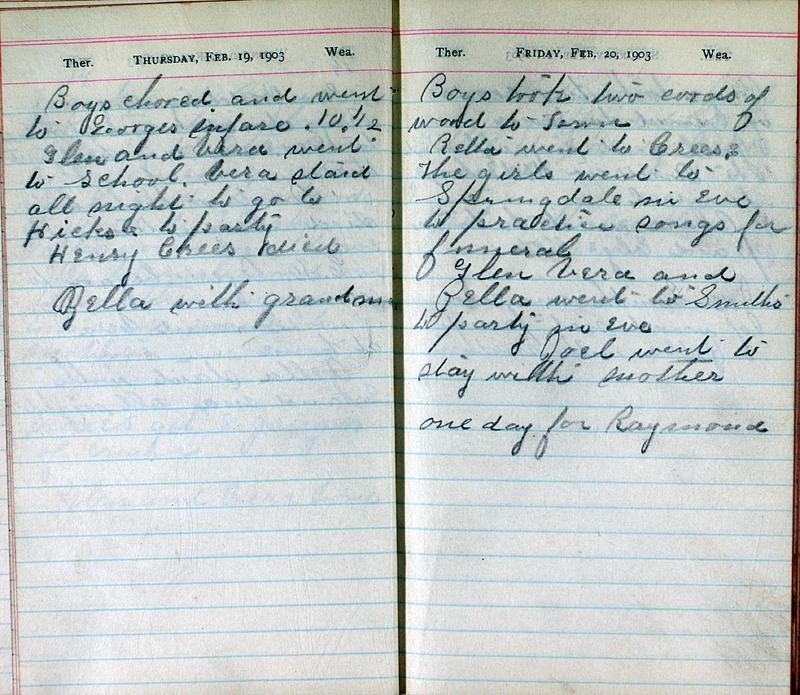 Ther. THURSDAY, FEB. 19, 1903 Wea.
Boys chored and went
to Georges infare . 10.½
Glen and Vera went
to School. Vera staid
all night to go to
Hicks. to party
Henry Crees died
Zella with grandma
Ther. FRIDAY, FEB. 20, 1903 Wea.
Boys took two cords of
wood to Town
Zella went to Crees.
The girls went to
Springdale in Eve
to practice songs for
funeral
Glen Vera and
Zella went to Smiths
to party in Eve
Joel went to
stay with mother
one day for Raymond